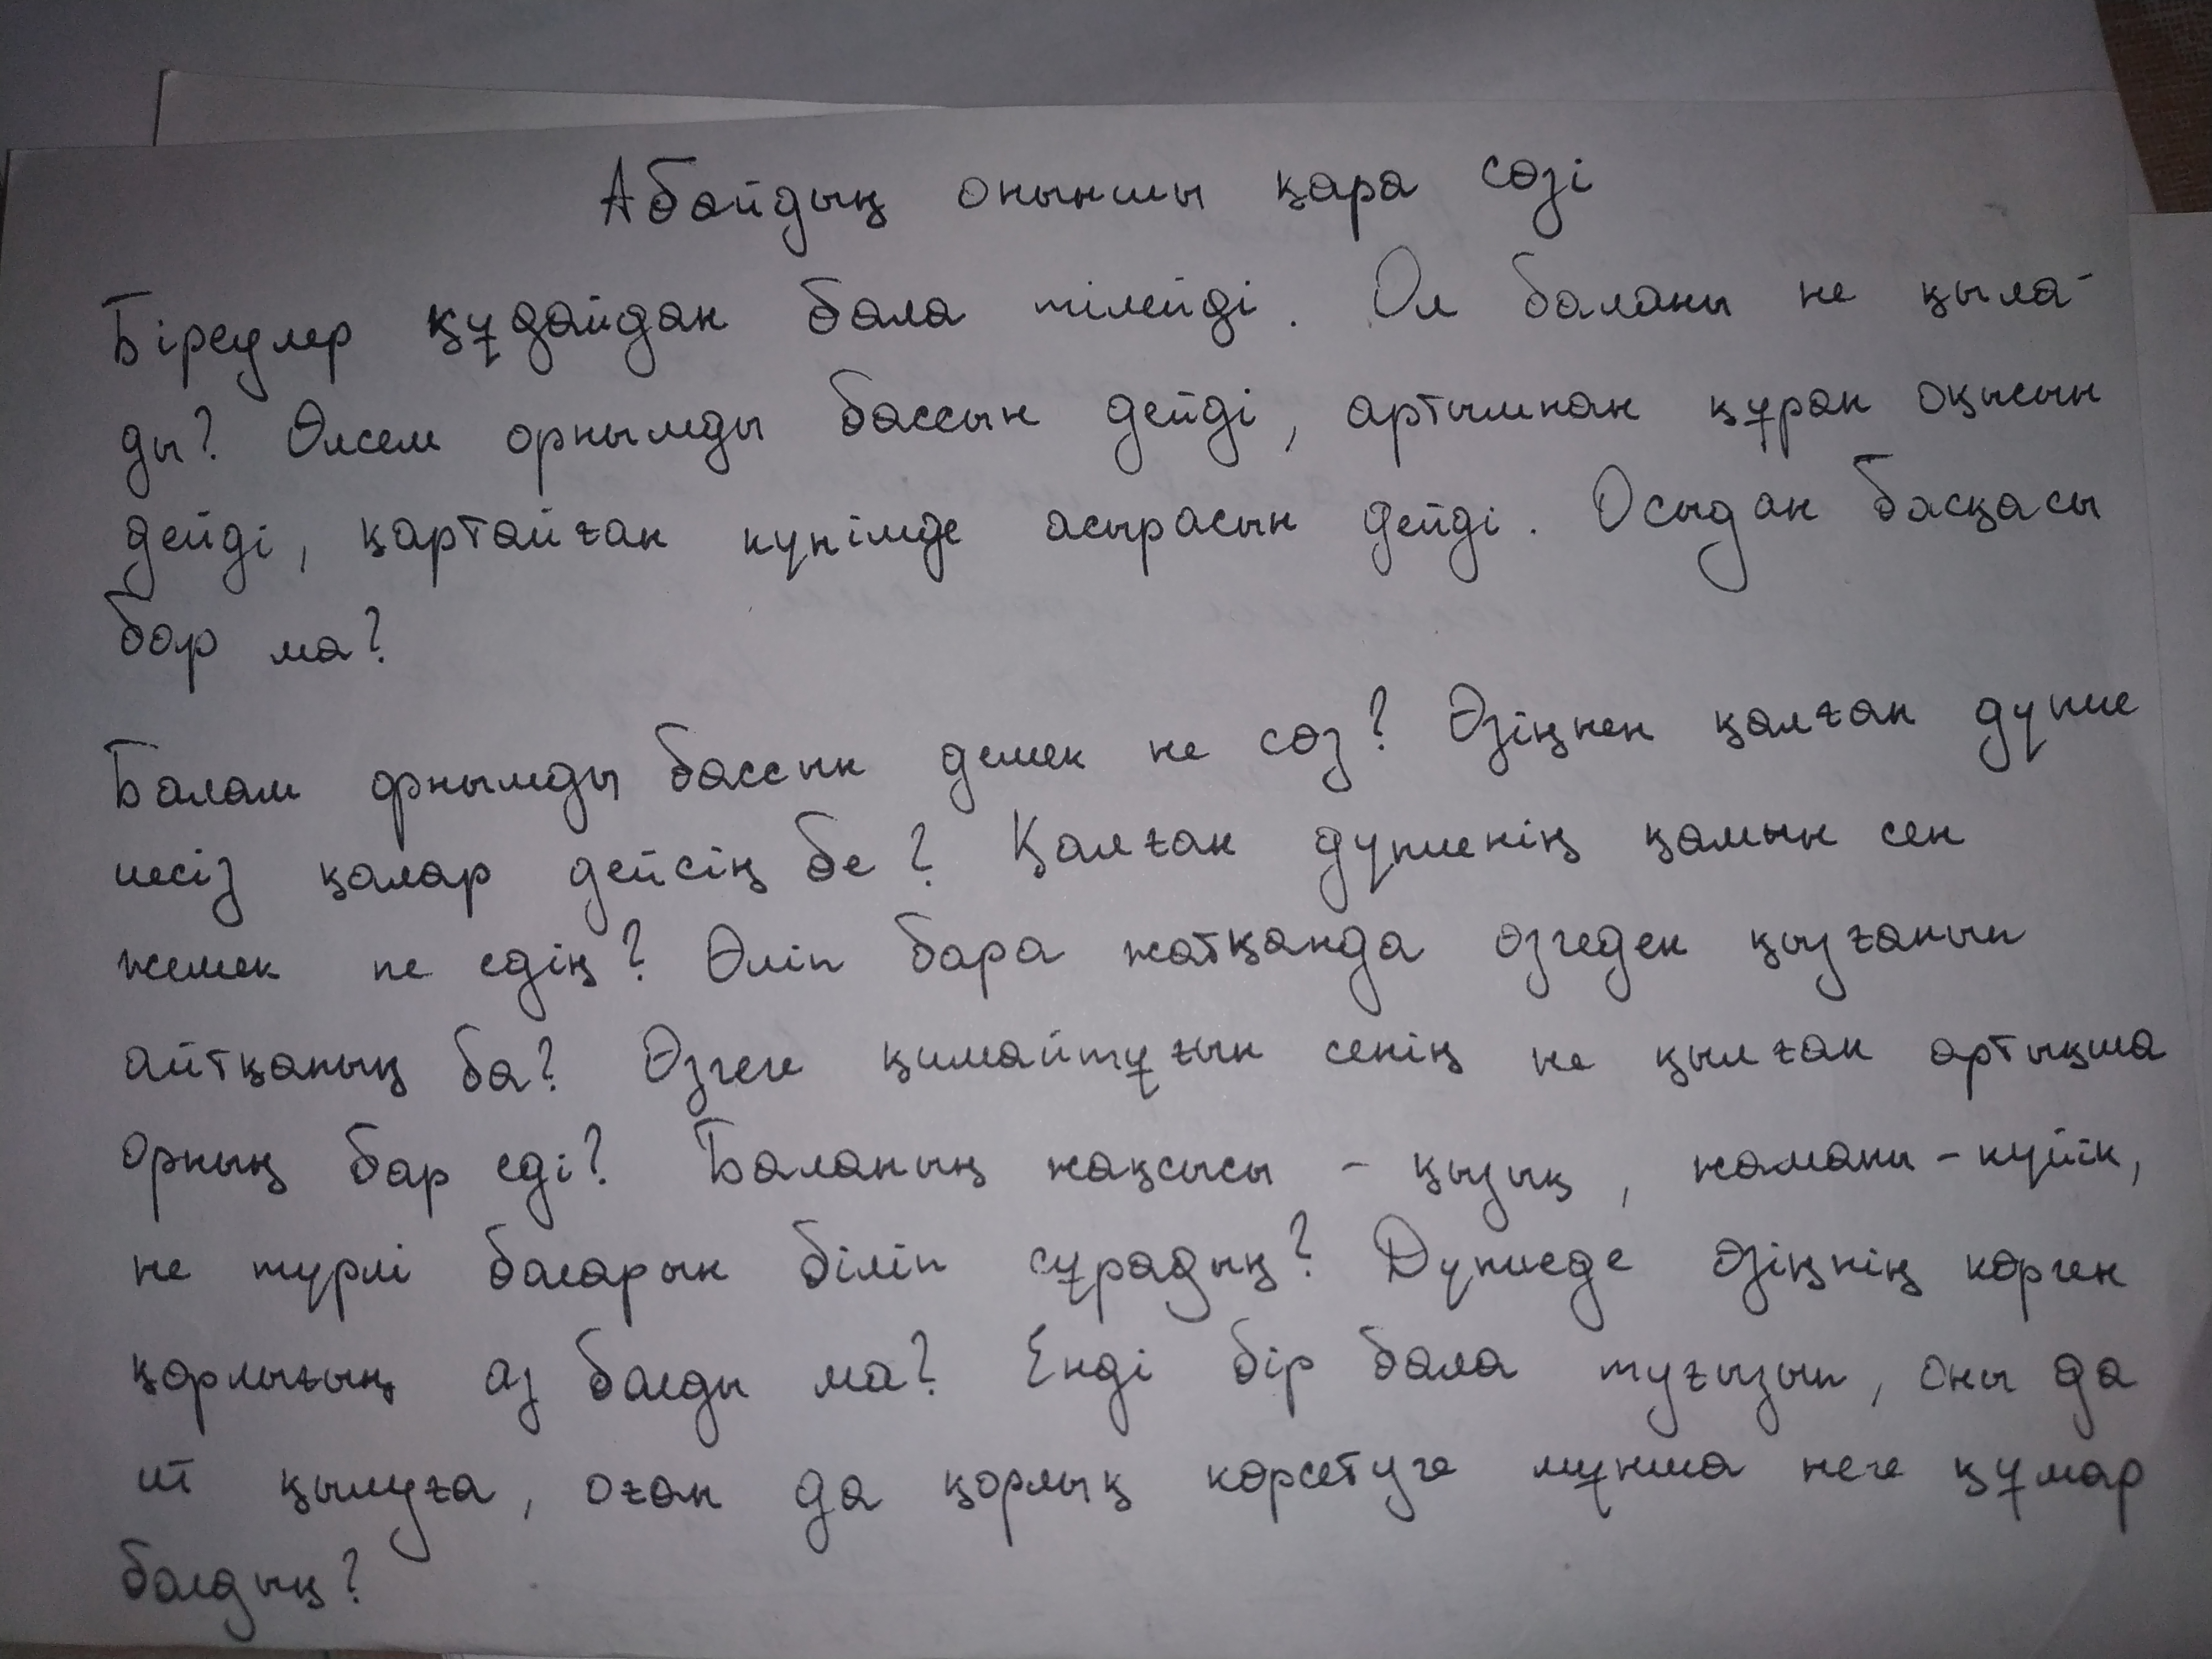 Абайдың оныншы қара сөзі
Біреулер құдайдан бала тілейді. Ол баланы не қыла-
ды? Өлсем орнымды бассын дейді, артымнан құран оқысын
дейді, қартайған күнімде асырасын дейді. Осыдан басқасы
бар ма?
Балам орнымды бассын демек не сөз? Өзіңнен қалған дүние
иесіз қалар дейсің бе? Қалған дүниенің қамын сен
жемек пе едің? Өліп бара жатқанда өзгеден қызғанып
айтқаның ба? Өзгеге қимайтұғын сенің не қылған артықша
орның бар еді? Баланың жақсысы - қызық, жаманы - күйік,
не түрлі боларын біліп сұрадың? Дүниеде өзіңнің көрген
қорлығың аз болды ма? Енді бір бала туғызып, оны да
ит қылуға, оған да қорлық көрсетуге мұнша неге құмар
болдың?